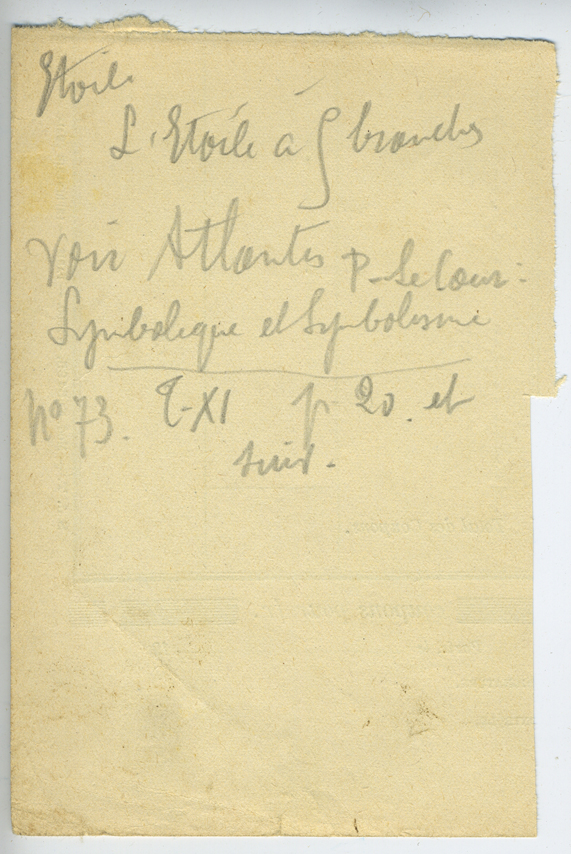 Etoile
L'Etoile à 5 branches
Voir Atlantis P. Le Cour.
Symbolique et Symbolisme
N° 73. T-XI p 20. et
suiv.